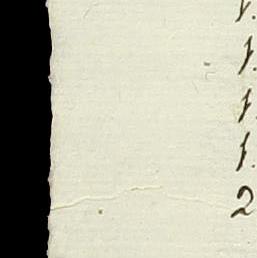 1.
1.
1.
1.
2